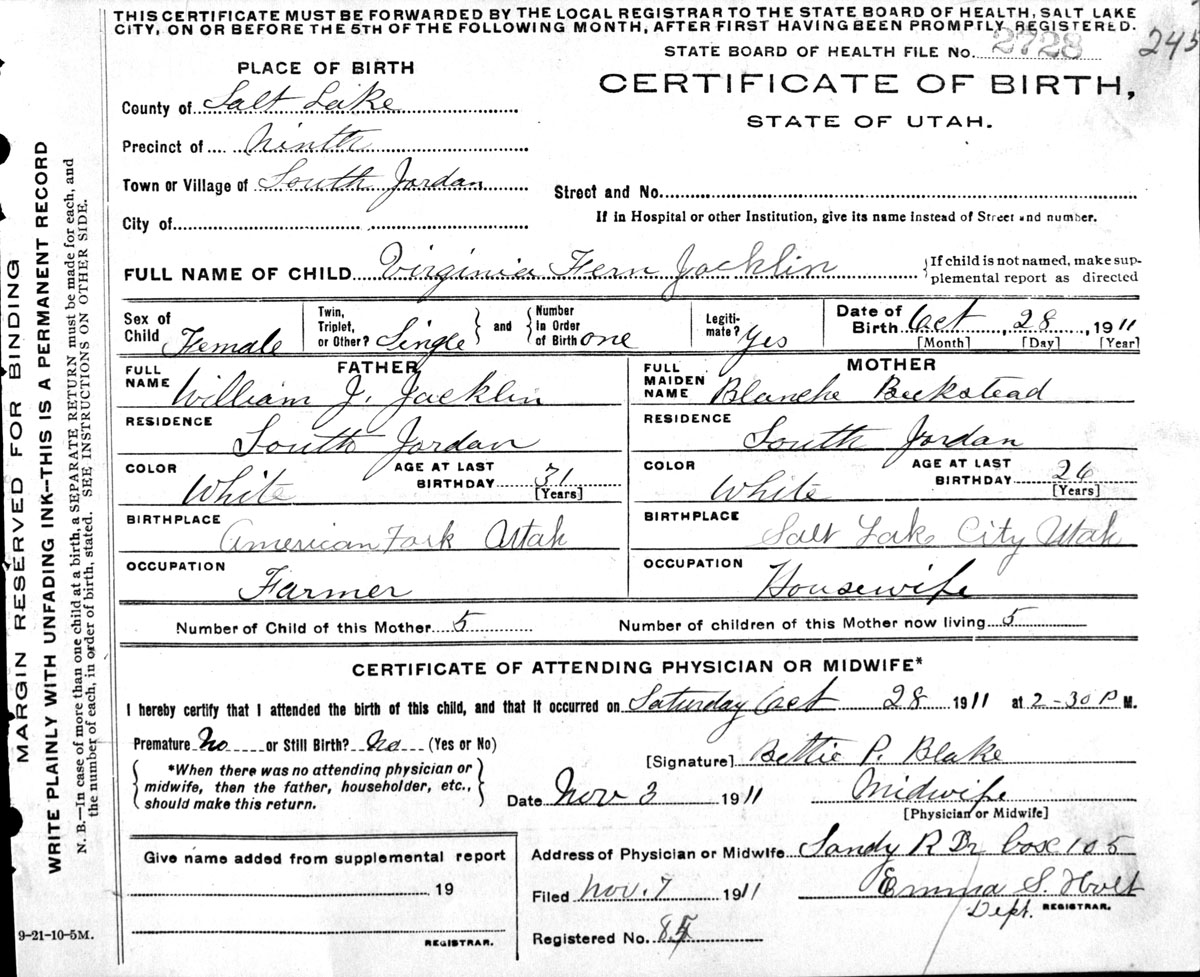 THIS CERTIFICATE MUST BE FORWARDED BY THE LOCAL REGISTRAR TO THE STATE BOARD OF HEALTH, SALT LAKE
CITY, ON OR BEFORE THE 5TH OF THE FOLLOWING MONTH, AFTER FIRST HAVING BEEN PROMPTLY REGISTERED.
STATE BOARD OF HEALTH FILE No. 2728 245
PLACE OF BIRTH
CERTIFICATE OF BIRTH,
STATE OF UTAH.
County of Salt Lake
Precinct of Ninth
Town or Village of South Jordan
Street and No.
City of
If in Hospital or other Institution, give its name instead of Street and number.
FULL NAME OF CHILD Virginia Fern Jacklin
{If child is not named, make sup-
plemental report as directed
Sex of Child Female
Twin, Triplet, or Other? Single
and
Number In Order of Birth one
Legiti-mate? Yes
Date of Birth Oct, 28, 1911
[Month] [Day] [Year]
FATHER
FULL NAME William J. Jacklin
RESIDENCE South Jordan
COLOR White
AGE AT LAST BIRTHDAY 31
[Years]
BIRTHPLACE American Fork Utah
OCCUPATION Farmer
MOTHER
FULL MAIDEN NAME Blanche Beckstead
RESIDENCE South Jordan
COLOR White
AGE AT LAST BIRTHDAY 26
[Years]
BIRTHPLACE Salt Lake City Utah
OCCUPATION Housewife
Number of Child of this Mother 5 Number of children of this Mother now living 5
CERTIFICATE OF ATTENDING PHYSICIAN OR MIDWIFE*
I hereby certify that I attended the birth of this child, and that it occurred on Saturday Oct 28 1911 at 2-30 P M.
Premature No or Still Birth? No (Yes or No)
[Signature] Bettie P. Blake
*When there was no attending physician or
midwife, then the father, householder, etc.,
should make this return.
Date Nov 3 1911 Midwife
[Physician or Midwife]
Give name added from supplemental report
19
REGISTRAR.
Address of Physician or Midwife Sandy R D box 105
Filed Nov. 7 1911 Emma S. Holt
Dept. REGISTRAR.
Registered No.
9-21-10-5M.
MARGIN RESERVED FOR BINDING
WRITE PLAINLY WITH UNFADING INK—THIS IS A PERMANENT RECORD
N. B.—In case of more than one child at a birth, a SEPARATE RETURN must be made for each, and
the number of each, in order of birth, stated. SEE INSTRUCTIONS ON OTHER SIDE.